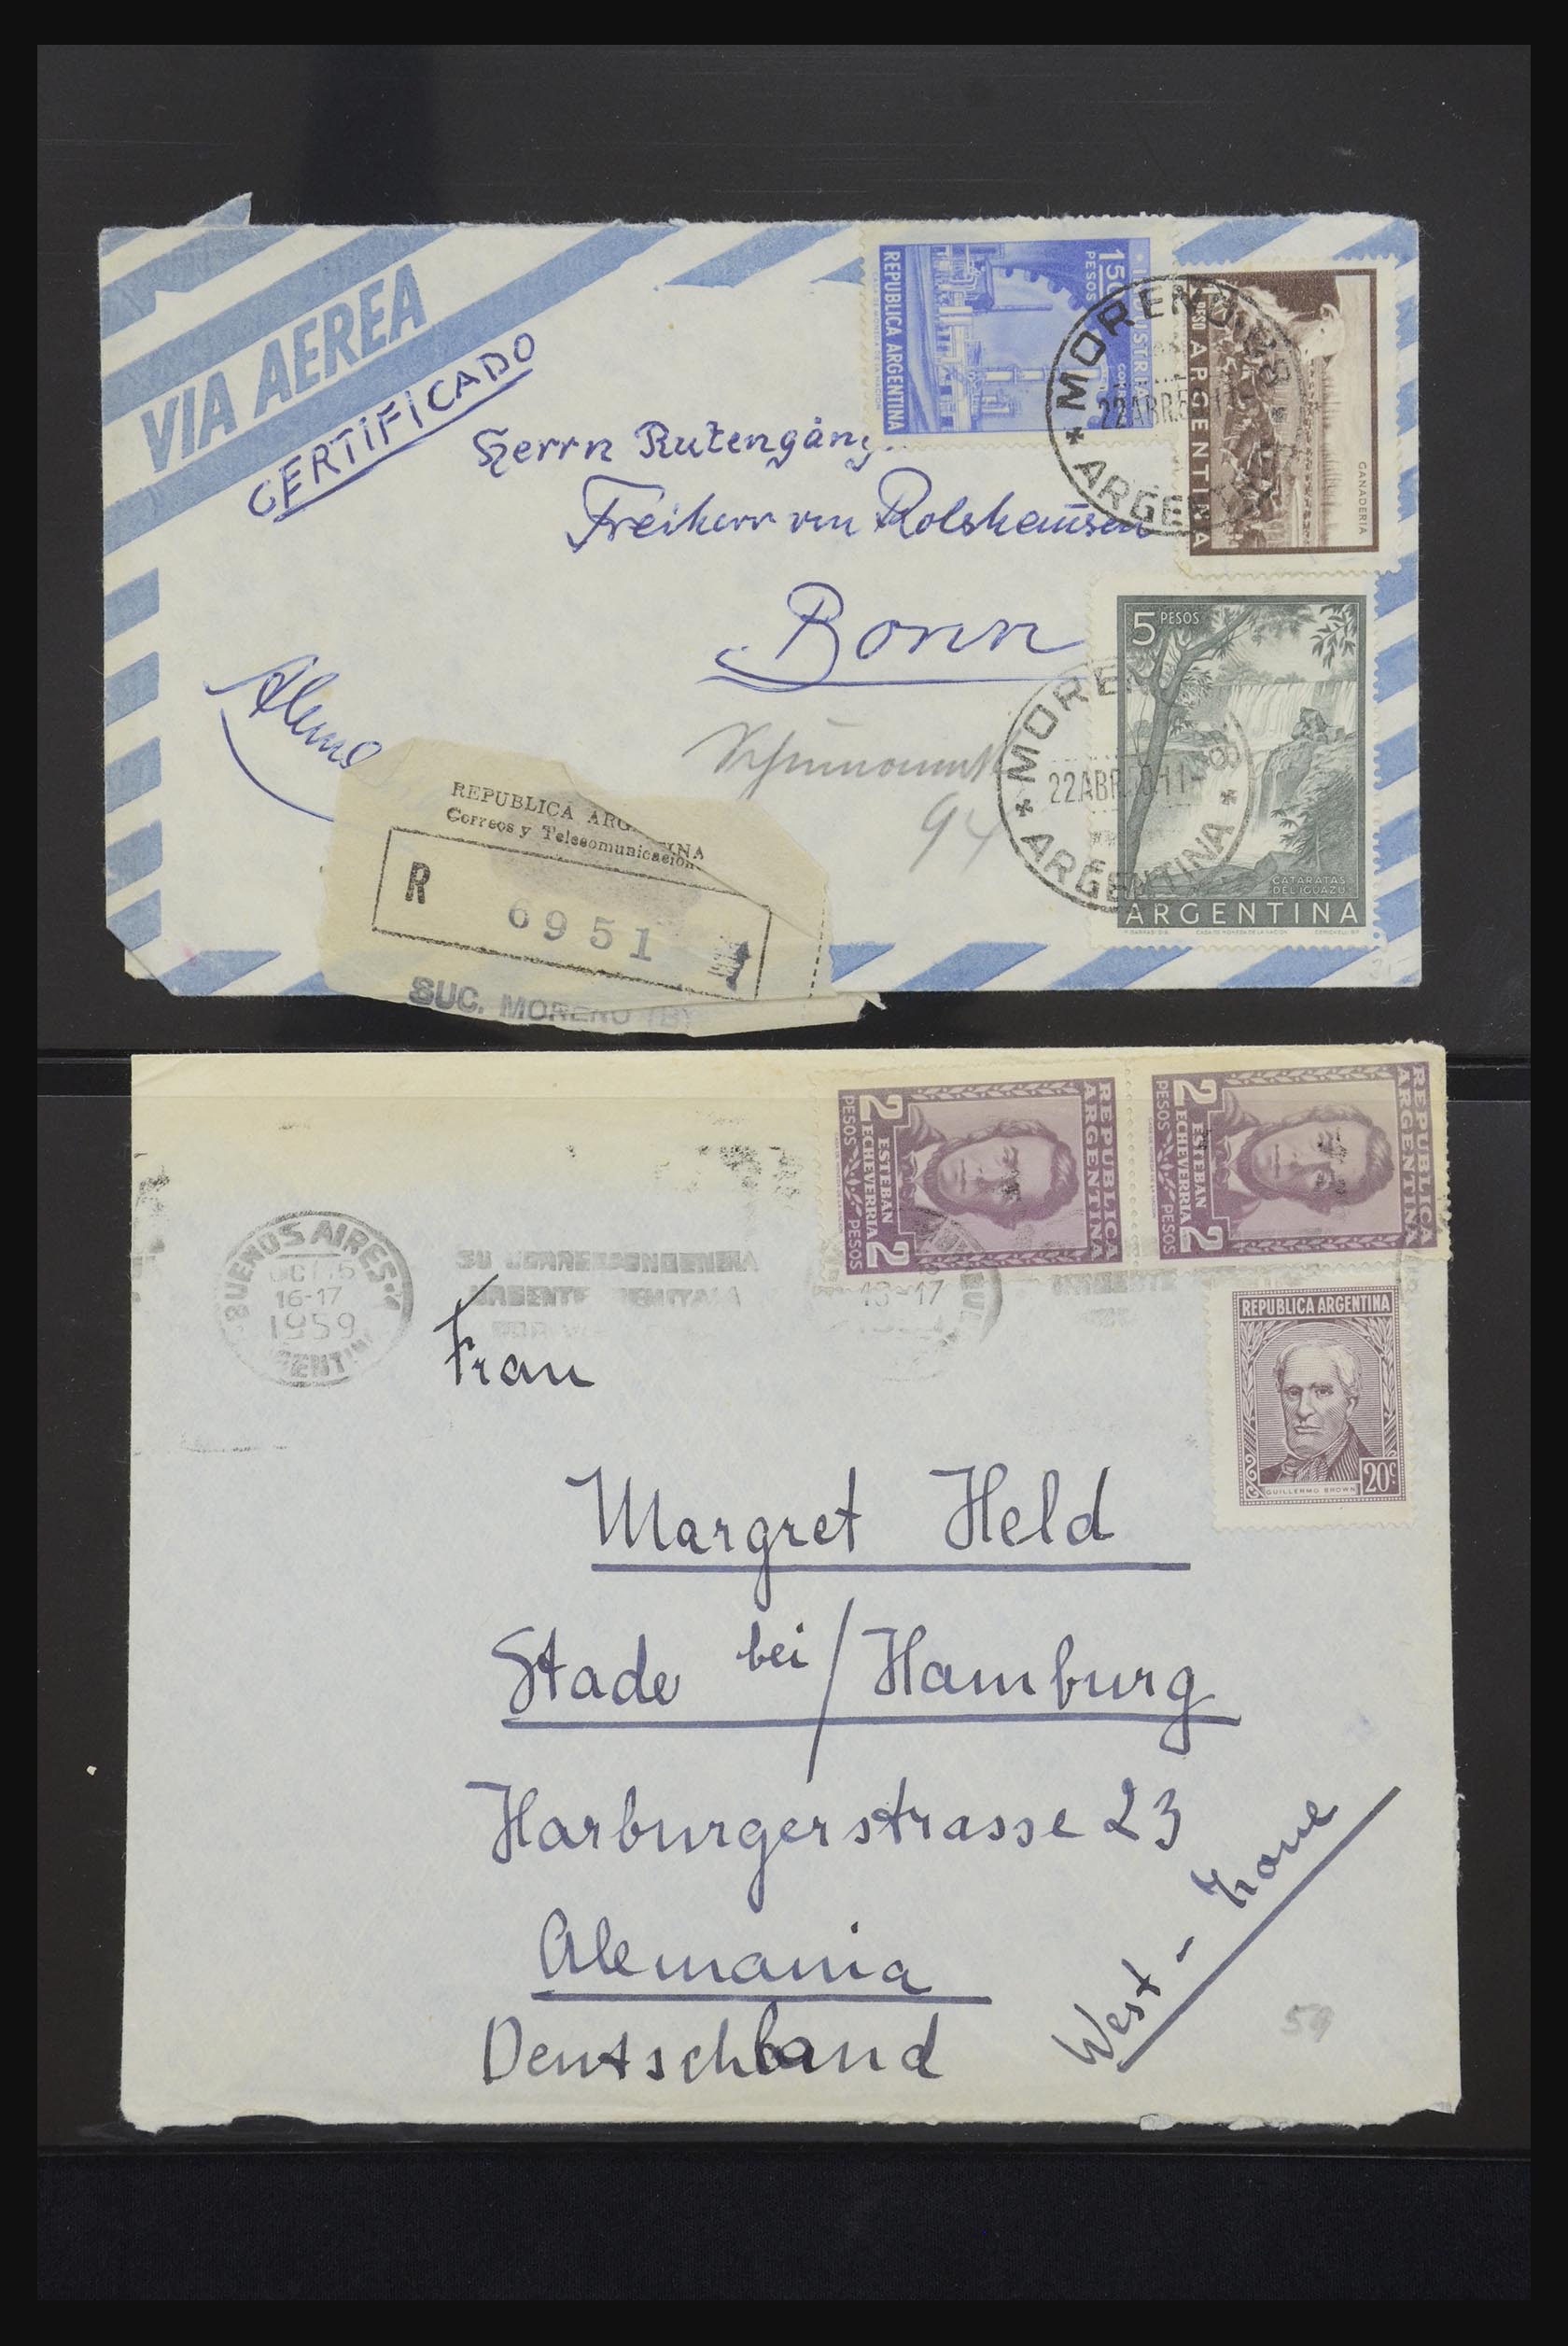 VIA AEREA
CERTIFICADO
REPUBLICA ARGENTINA
1.50
PESOS
INDUSTRIA
1 PESO
ARGENTINA
GANADERIA
MORENO
22 ABR
ARGE
Herrn Rutengäng
Freiherr von Rolshausen
Bonn
Alema
5 PESOS
CATARATAS
DEL IGUAZU
ARGENTINA
MORE
22 ABR
ARGENTINA
94
REPUBLICA ARG INA
Correos y Telecomunicacion
R
6951
SUC. MORENO (B)
REPUBLICA
ARGENTINA
ESTEBAN
ECHEVERRIA
2 PESOS
2 PESOS
REPUBLICA
ARGENTINA
ESTEBAN
ECHEVERRIA
2 PESOS
2 PESOS
BUENOS AIRES
OCT 5
16-17
1959
ENTIN
SU CORRESPONDENCIA
16-17
REPUBLICA ARGENTINA
GUILLERMO BROWN
20c
Frau
Margret Held
Stade bei / Hamburg
Harburgerstrasse 23
Alemania
Deutschland
West - Zone
59